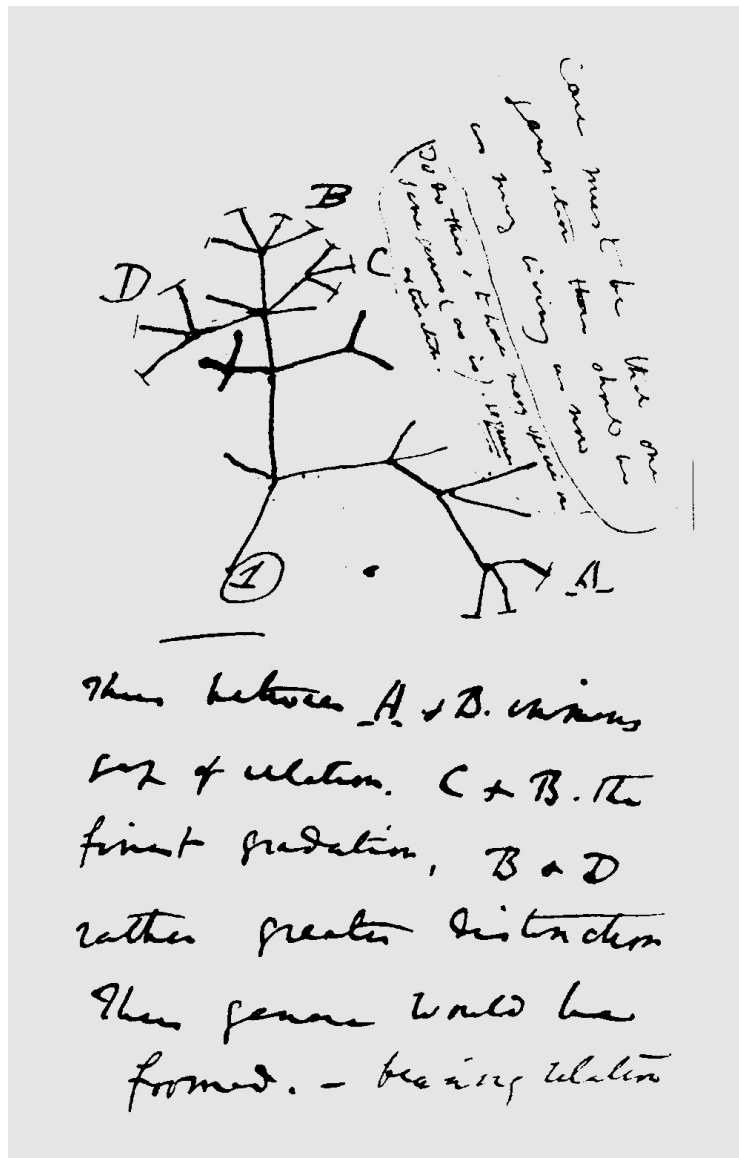 Case must be that one
generation then should be
as many living as now
To do this & to have many species in
same genus (as is). requires
extinction.
B
C
D
A
1
Thus between A & B. immense
gap of relation. C & B. The
finest gradation, B & D
rather greater distinction
Thus genera would be
formed. – bearing relation